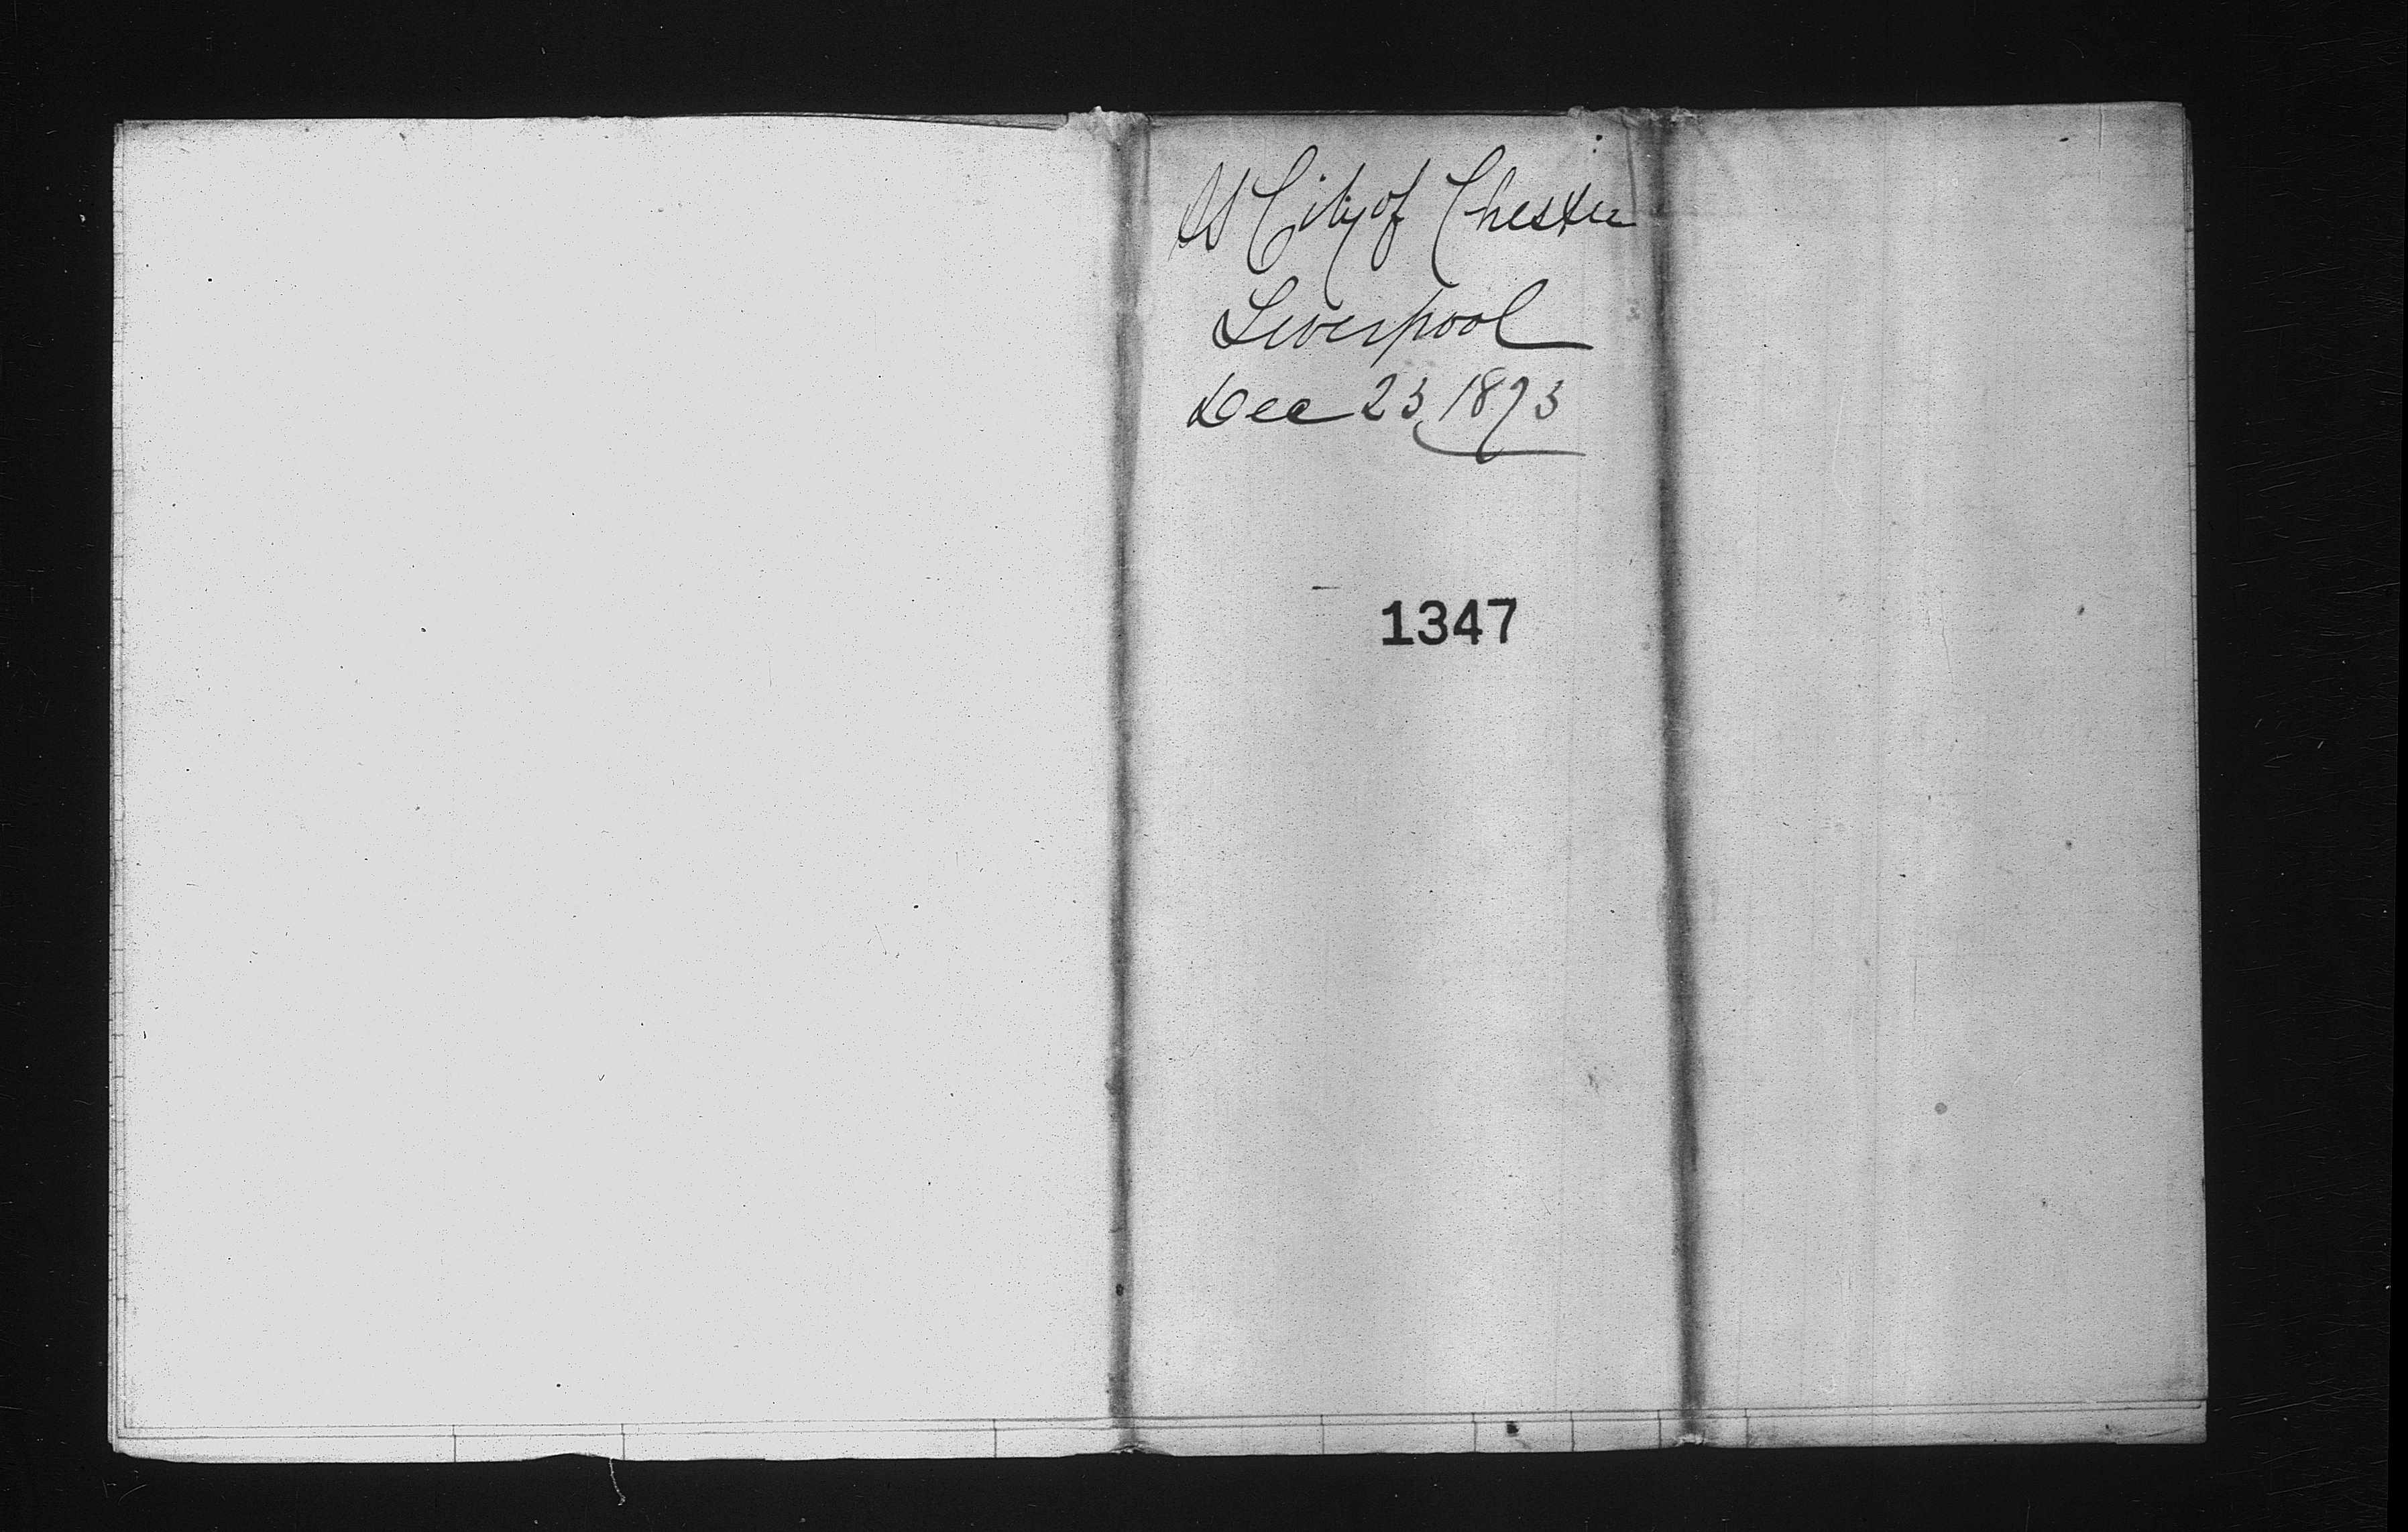 SS City of Chester
Liverpool
Dec 23, 1873
1347